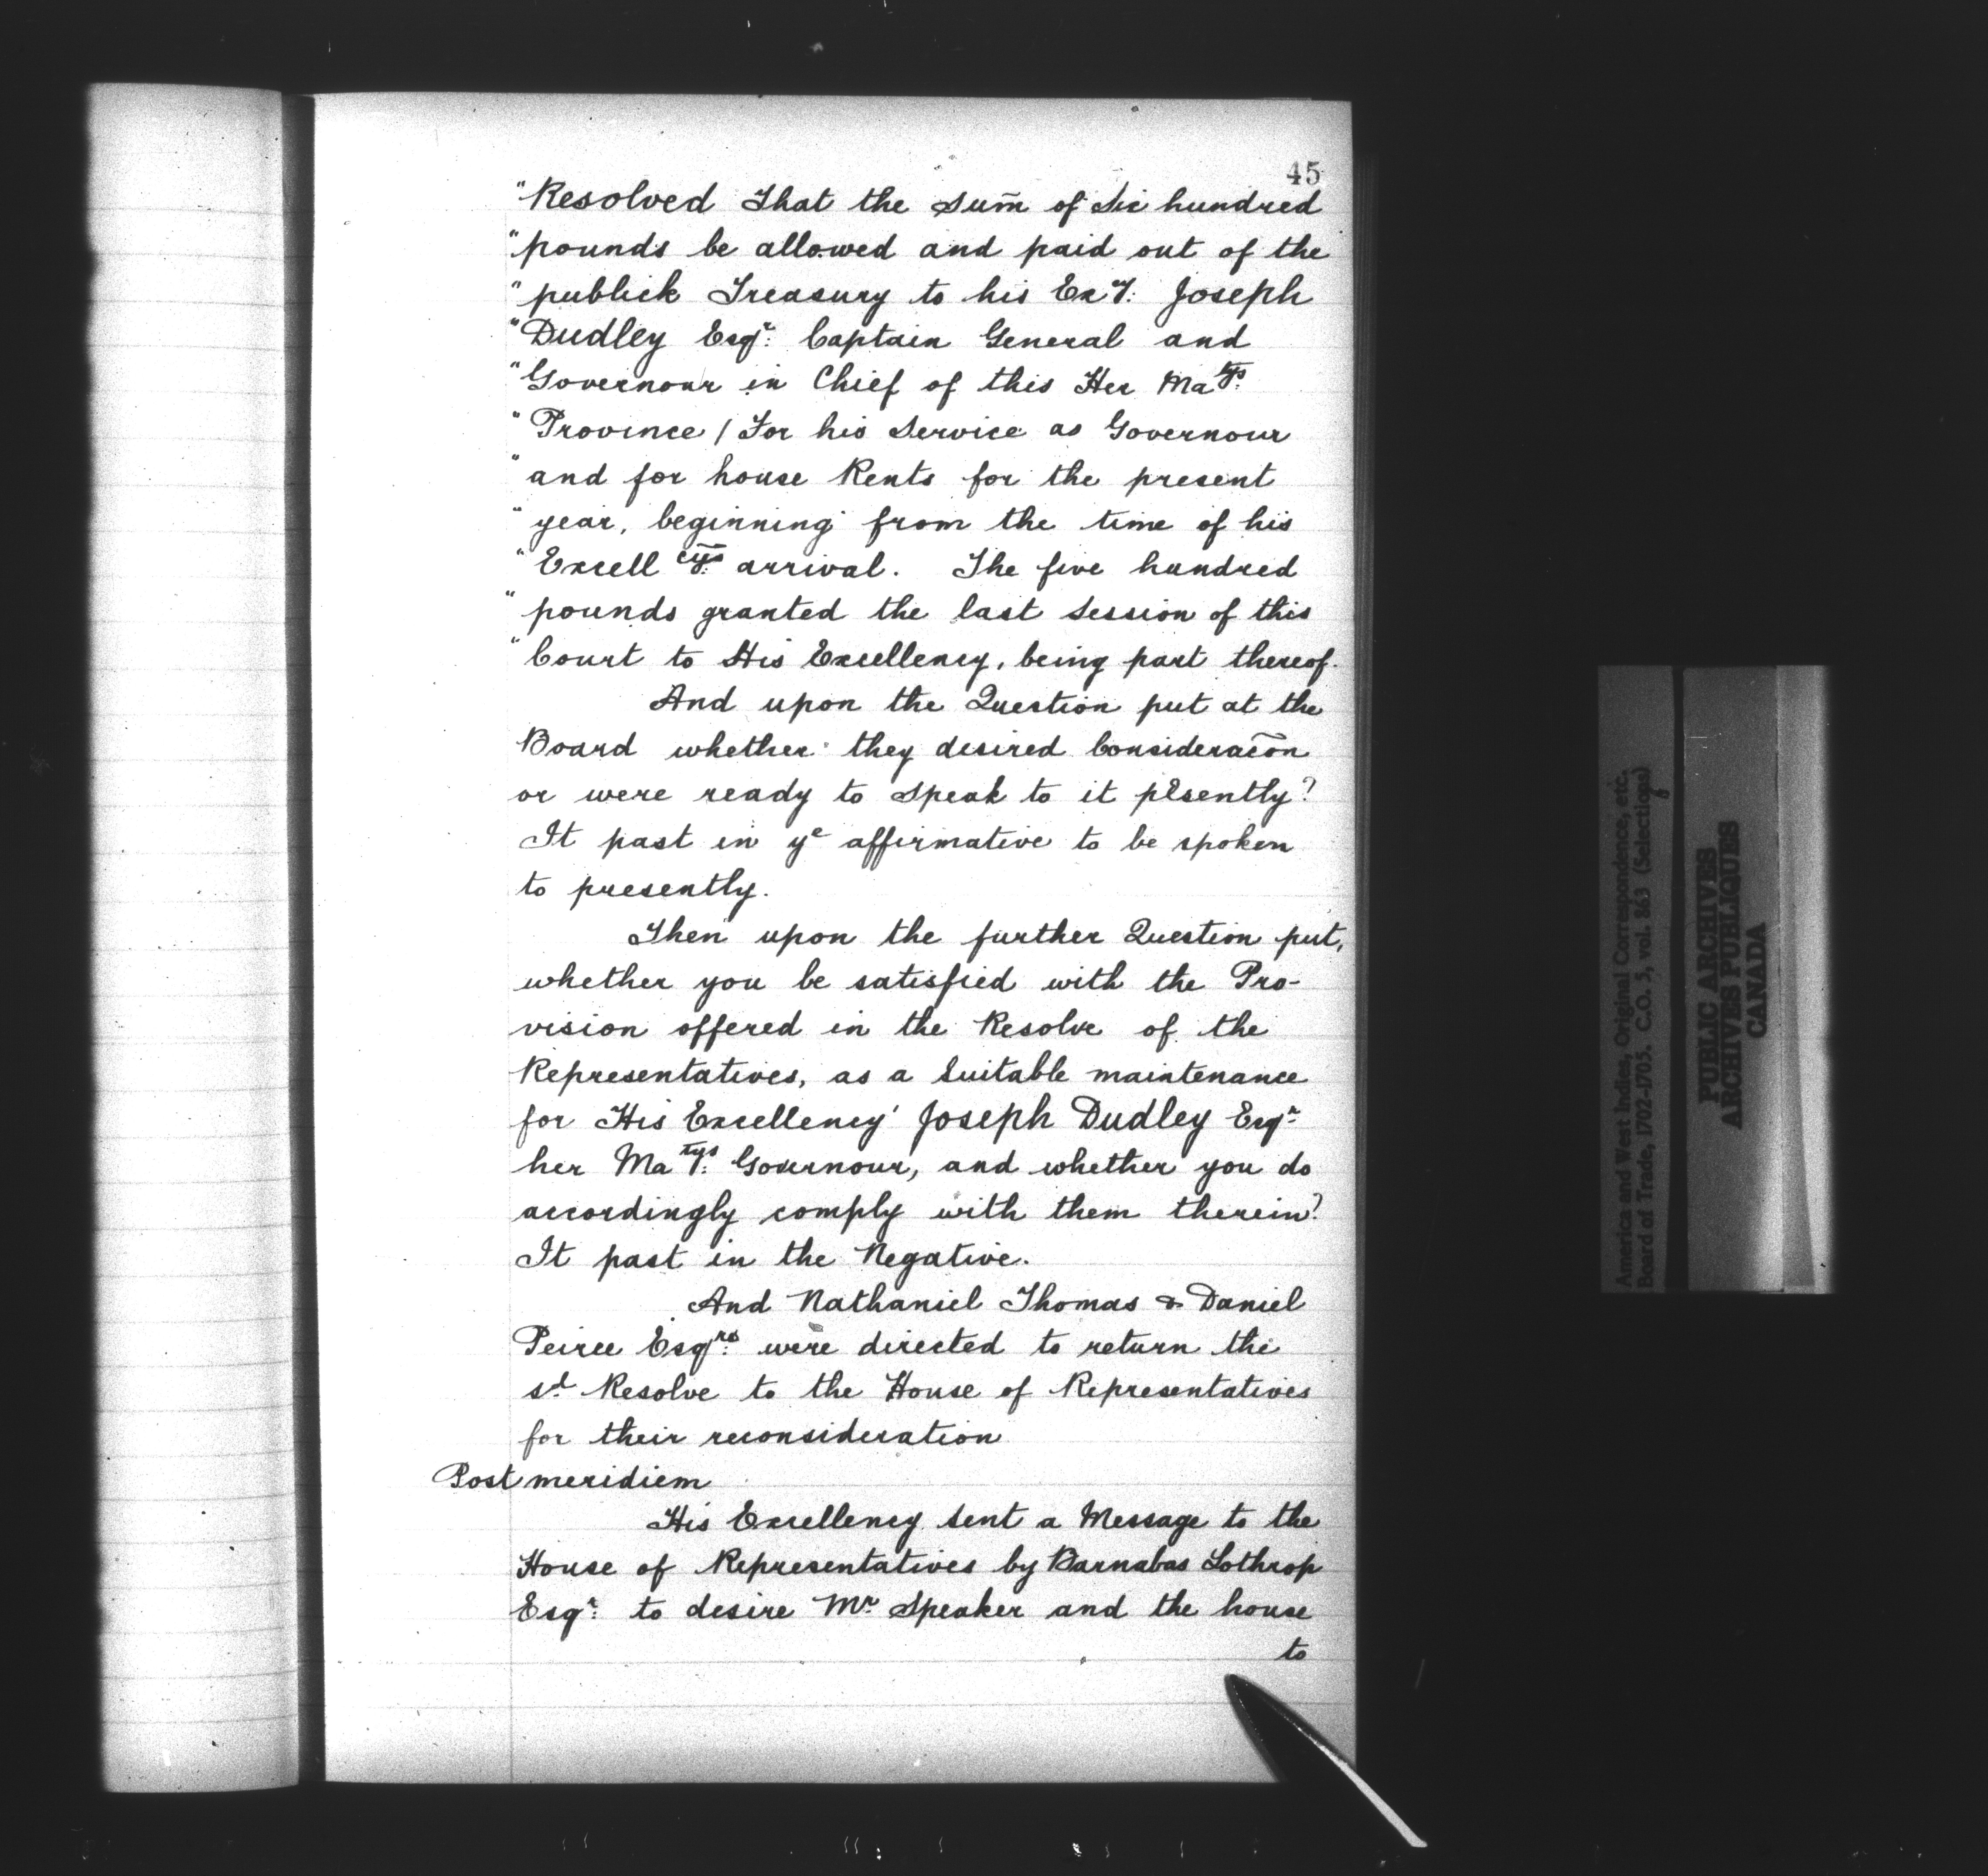 45
"Resolved That the Sum̄ of Six hundred
"pounds be allowed and paid out of the
"publick Treasury to his Exy: Joseph
"Dudley Esqr: Captain General and
"Governour in Chief of this Her Matys:
"Province / For his Service as Governour
"and for house Rents for the present
"year, beginning from the time of his
"Excellcys: arrival. The five hundred
"pounds granted the last Session of this
"Court to His Excellency, being part thereof.
And upon the Question put at the
Board whether they desired Consideracōn
or were ready to Speak to it plsently?
It past in ye affirmative to be spoken
to presently.
Then upon the further Question put,
whether you be satisfied with the Pro-
vision offered in the Resolve of the
Representatives, as a Suitable maintenance
for His Excellency Joseph Dudley Esqr
her Matys: Governour, and whether you do
accordingly comply with them therein?
It past in the Negative.
And Nathaniel Thomas & Daniel
Peirce Esqrs: were directed to return the
sd Resolve to the House of Representatives
for their reconsideration
Post meridiem
His Excellency Sent a Message to the
House of Representatives by Barnabas Lothrop
Esqr: to desire Mr Speaker and the house
to
America and West Indies, Original Correspondence, etc.
Board of Trade, 1702-1703. C.O. 5, vol. 863 (Selections)
PUBLIC ARCHIVES
ARCHIVES PUBLIQUES
CANADA